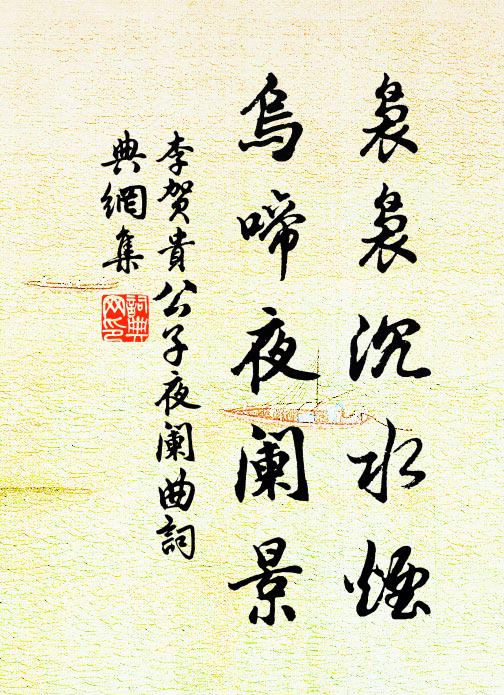 裊裊沉水煙
烏啼夜闌景
李賀貴公子夜闌曲詞
典網集
詞典
网印